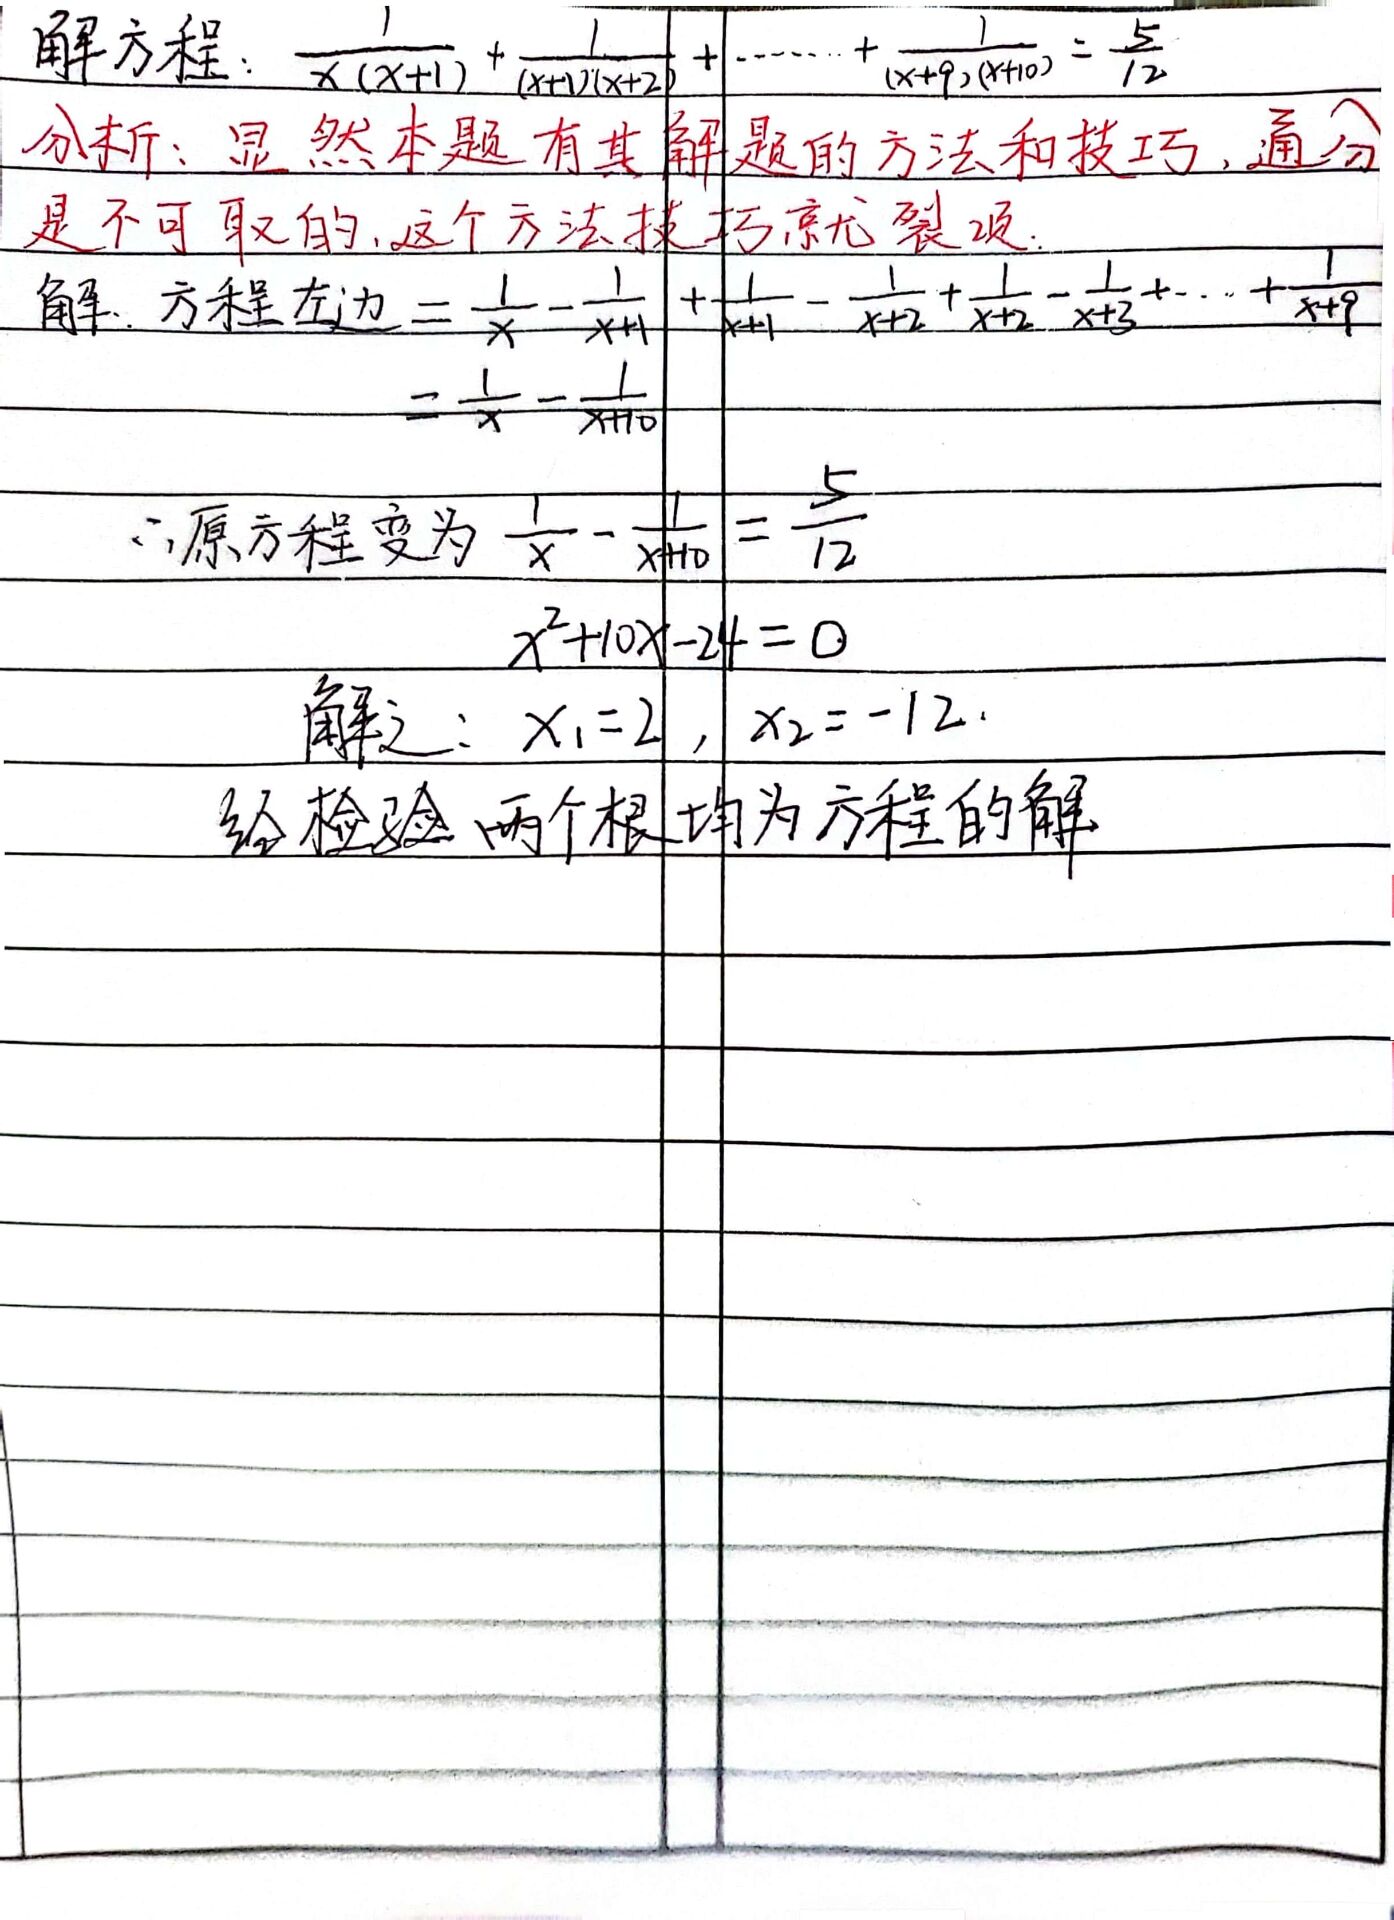 解方程: 1/x(x+1) + 1/(x+1)(x+2) + ········ + 1/(x+9)(x+10) = 5/12
分析: 显然本题有其解题的方法和技巧,通分
是不可取的,这个方法技巧就裂项.
解: 方程左边 = 1/x - 1/x+1 + 1/x+1 - 1/x+2 + 1/x+2 - 1/x+3 + ···· + 1/x+9
= 1/x - 1/x+10
∴原方程变为 1/x - 1/x+10 = 5/12
x²+10x-24=0
解之: x₁=2, x₂=-12.
经检验两个根均为方程的解